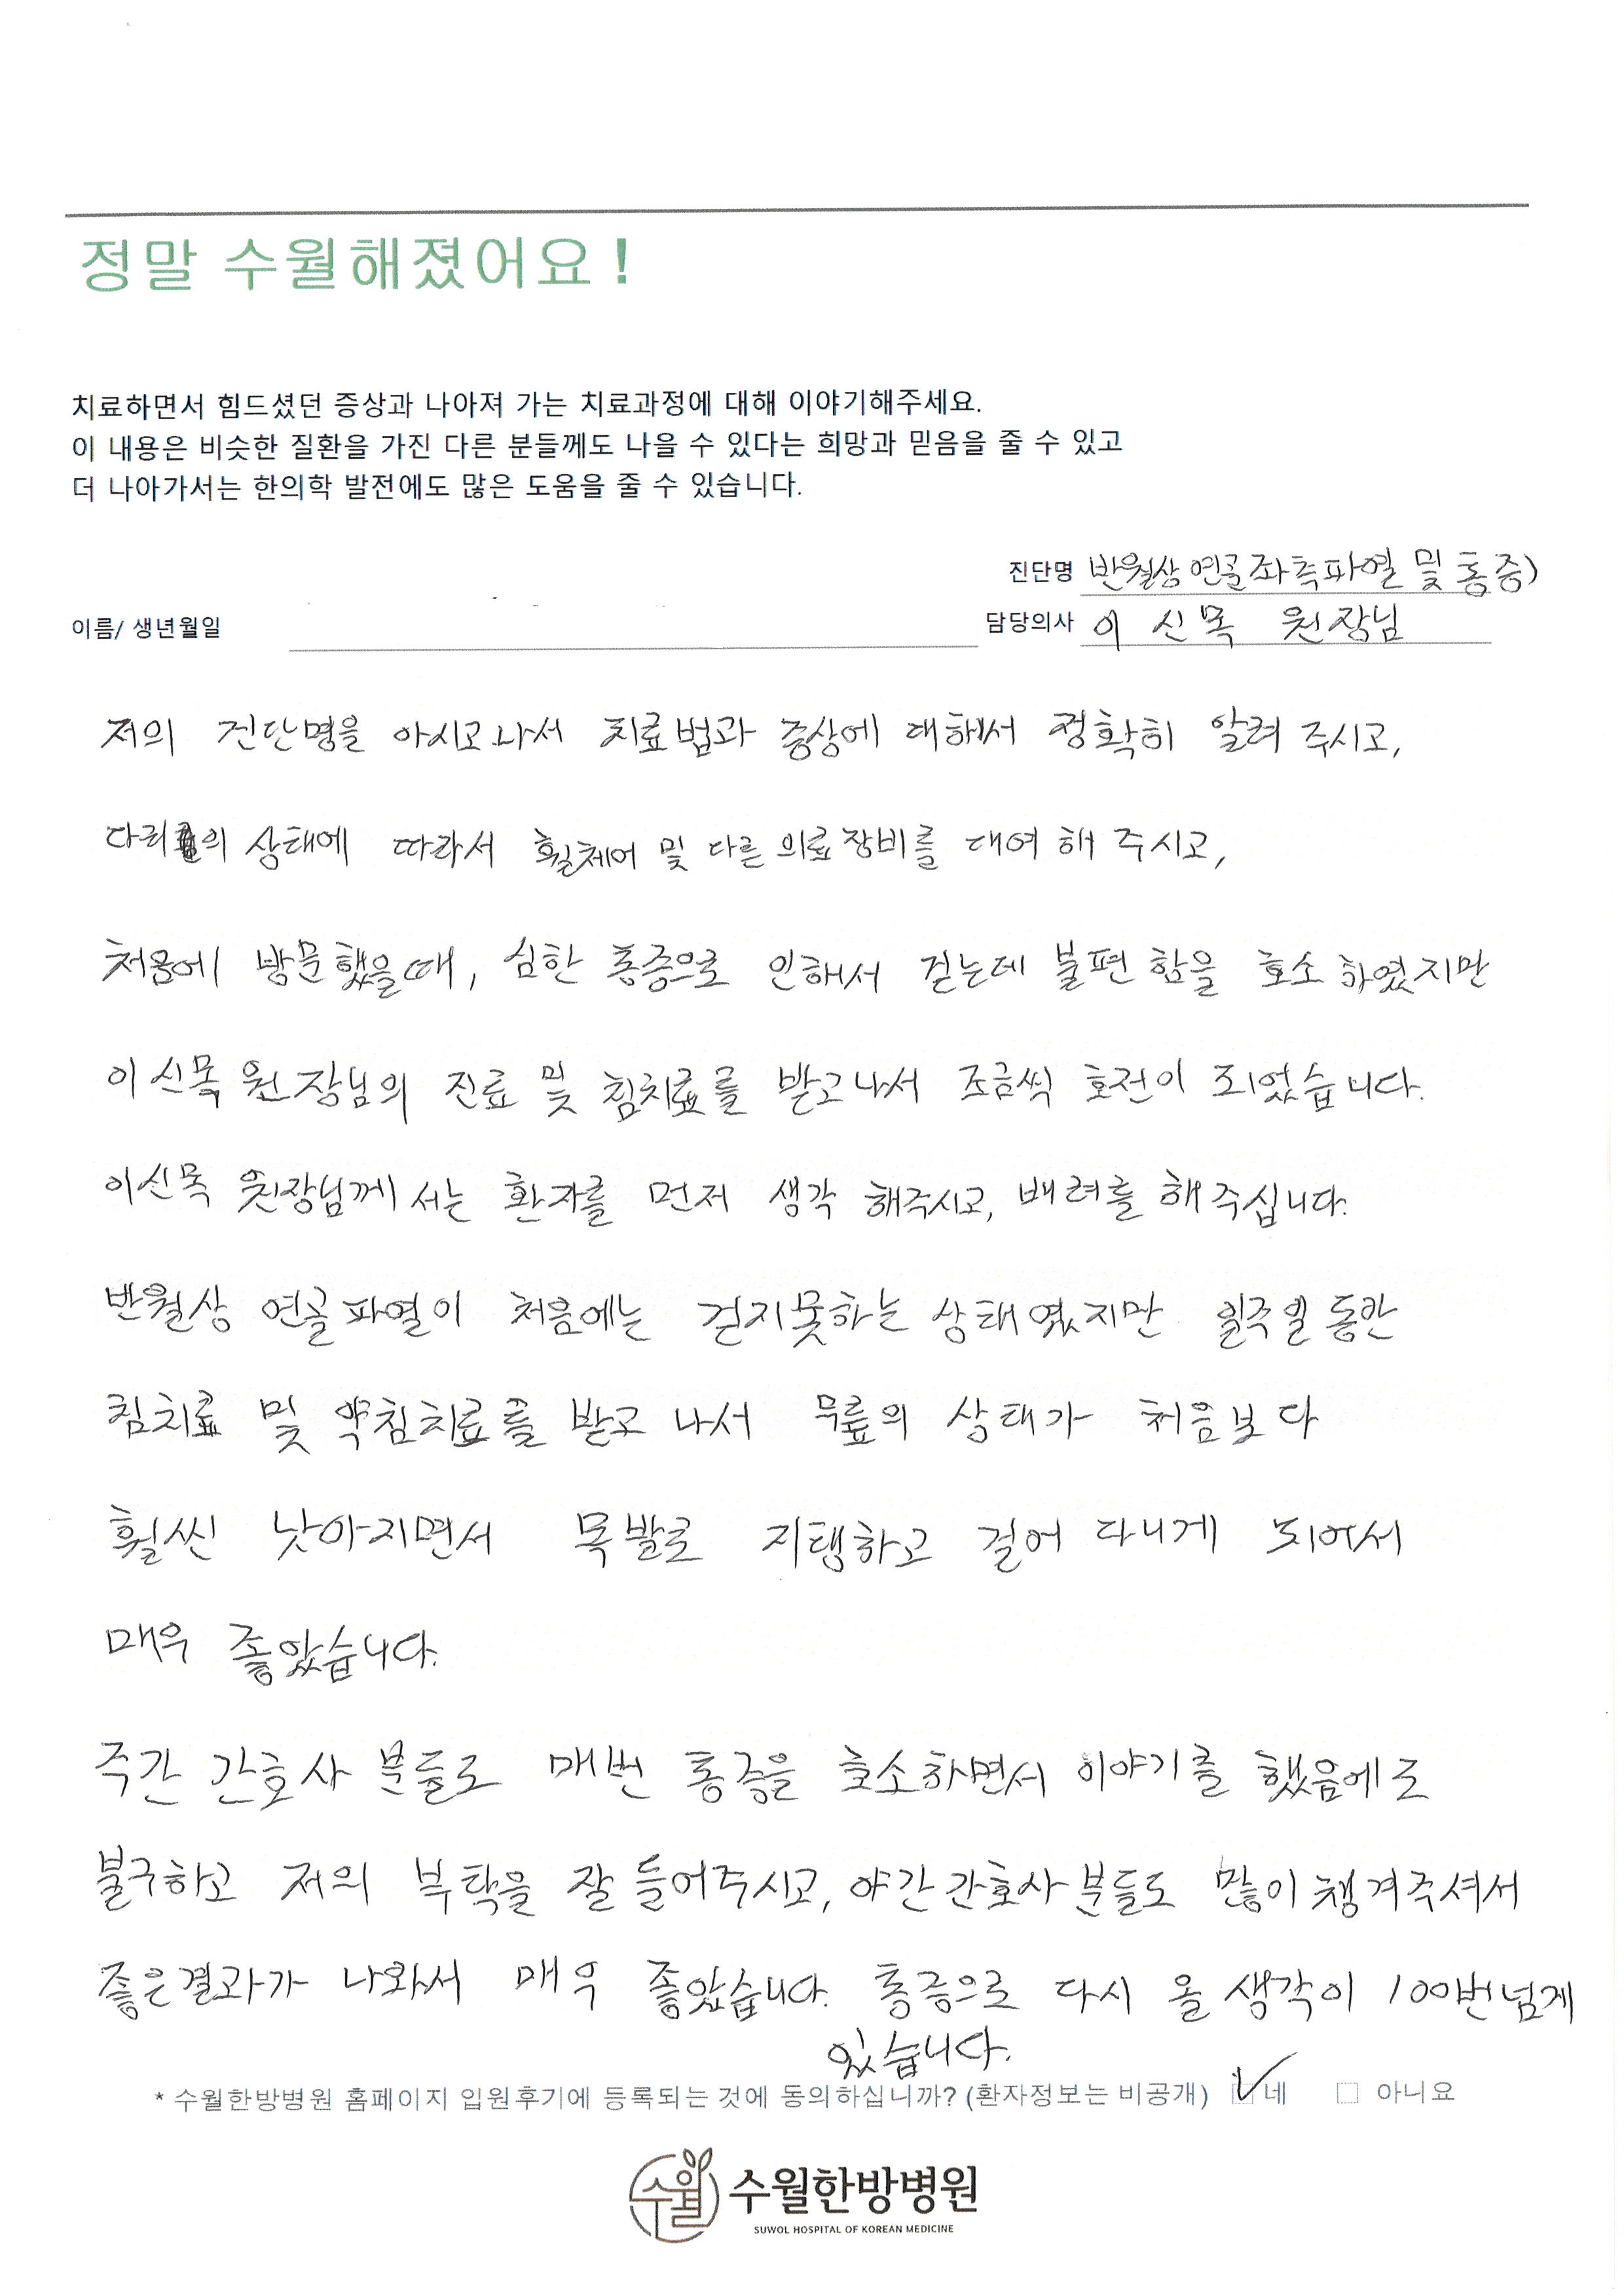 정말 수월해졌어요!
치료하면서 힘드셨던 증상과 나아져 가는 치료과정에 대해 이야기해주세요.
이 내용은 비슷한 질환을 가진 다른 분들께도 나을 수 있다는 희망과 믿음을 줄 수 있고
더 나아가서는 한의학 발전에도 많은 도움을 줄 수 있습니다.
진단명 반월상 연골좌측파열 및 통증)
이름/ 생년월일
담당의사 이 신목 원장님
저의 진단명을 아시고나서 치료법과 증상에 대해서 정확히 알려 주시고,
다리의 상태에 따라서 휠체어 및 다른 의료장비를 대여 해 주시고,
처음에 방문했을때, 심한 통증으로 인해서 걷는데 불편 함을 호소 하였지만
이신목 원장님의 진료 및 침치료를 받고나서 조금씩 호전이 되었습니다.
이신목 원장님께서는 환자를 먼저 생각 해주시고, 배려를 해 주십니다.
반월상 연골파열이 처음에는 걷지못하는 상태였지만 일주일 동안
침치료 및 약침치료를 받고 나서 무릎의 상태가 처음보다
훨씬 낫아지면서 목발로 지탱하고 걸어 다니게 되어서
매우 좋았습니다.
주간 간호사 분들로 매번 통증을 호소하면서 이야기를 했음에도
불구하고 저의 부탁을 잘 들어주시고, 야간간호사분들도 많이 챙겨주셔서
좋은결과가 나와서 매우 좋았습니다. 통증으로 다시 올 생각이 100번넘게
있습니다.
* 수월한방병원 홈페이지 입원후기에 등록되는 것에 동의하십니까? (환자정보는 비공개) ☑ 네 □ 아니요
수월 수월한방병원
SUWOL HOSPITAL OF KOREAN MEDICINE